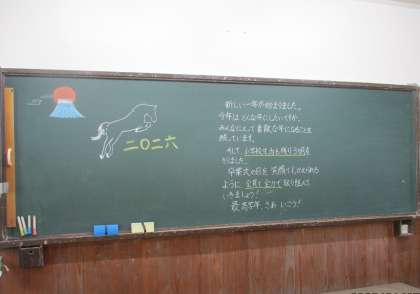 二〇二六
新しい一年が始まりました。
今年はどんな年にしたいですか。
みんなにとって素敵な年になることを
願っています。
そして、小学校生活も残り3ヶ月を
きりました。
卒業式の日を笑顔でむかえられる
ように、全員で全力で取り組んで
いきましょう!
最高学年、さあ いこう!